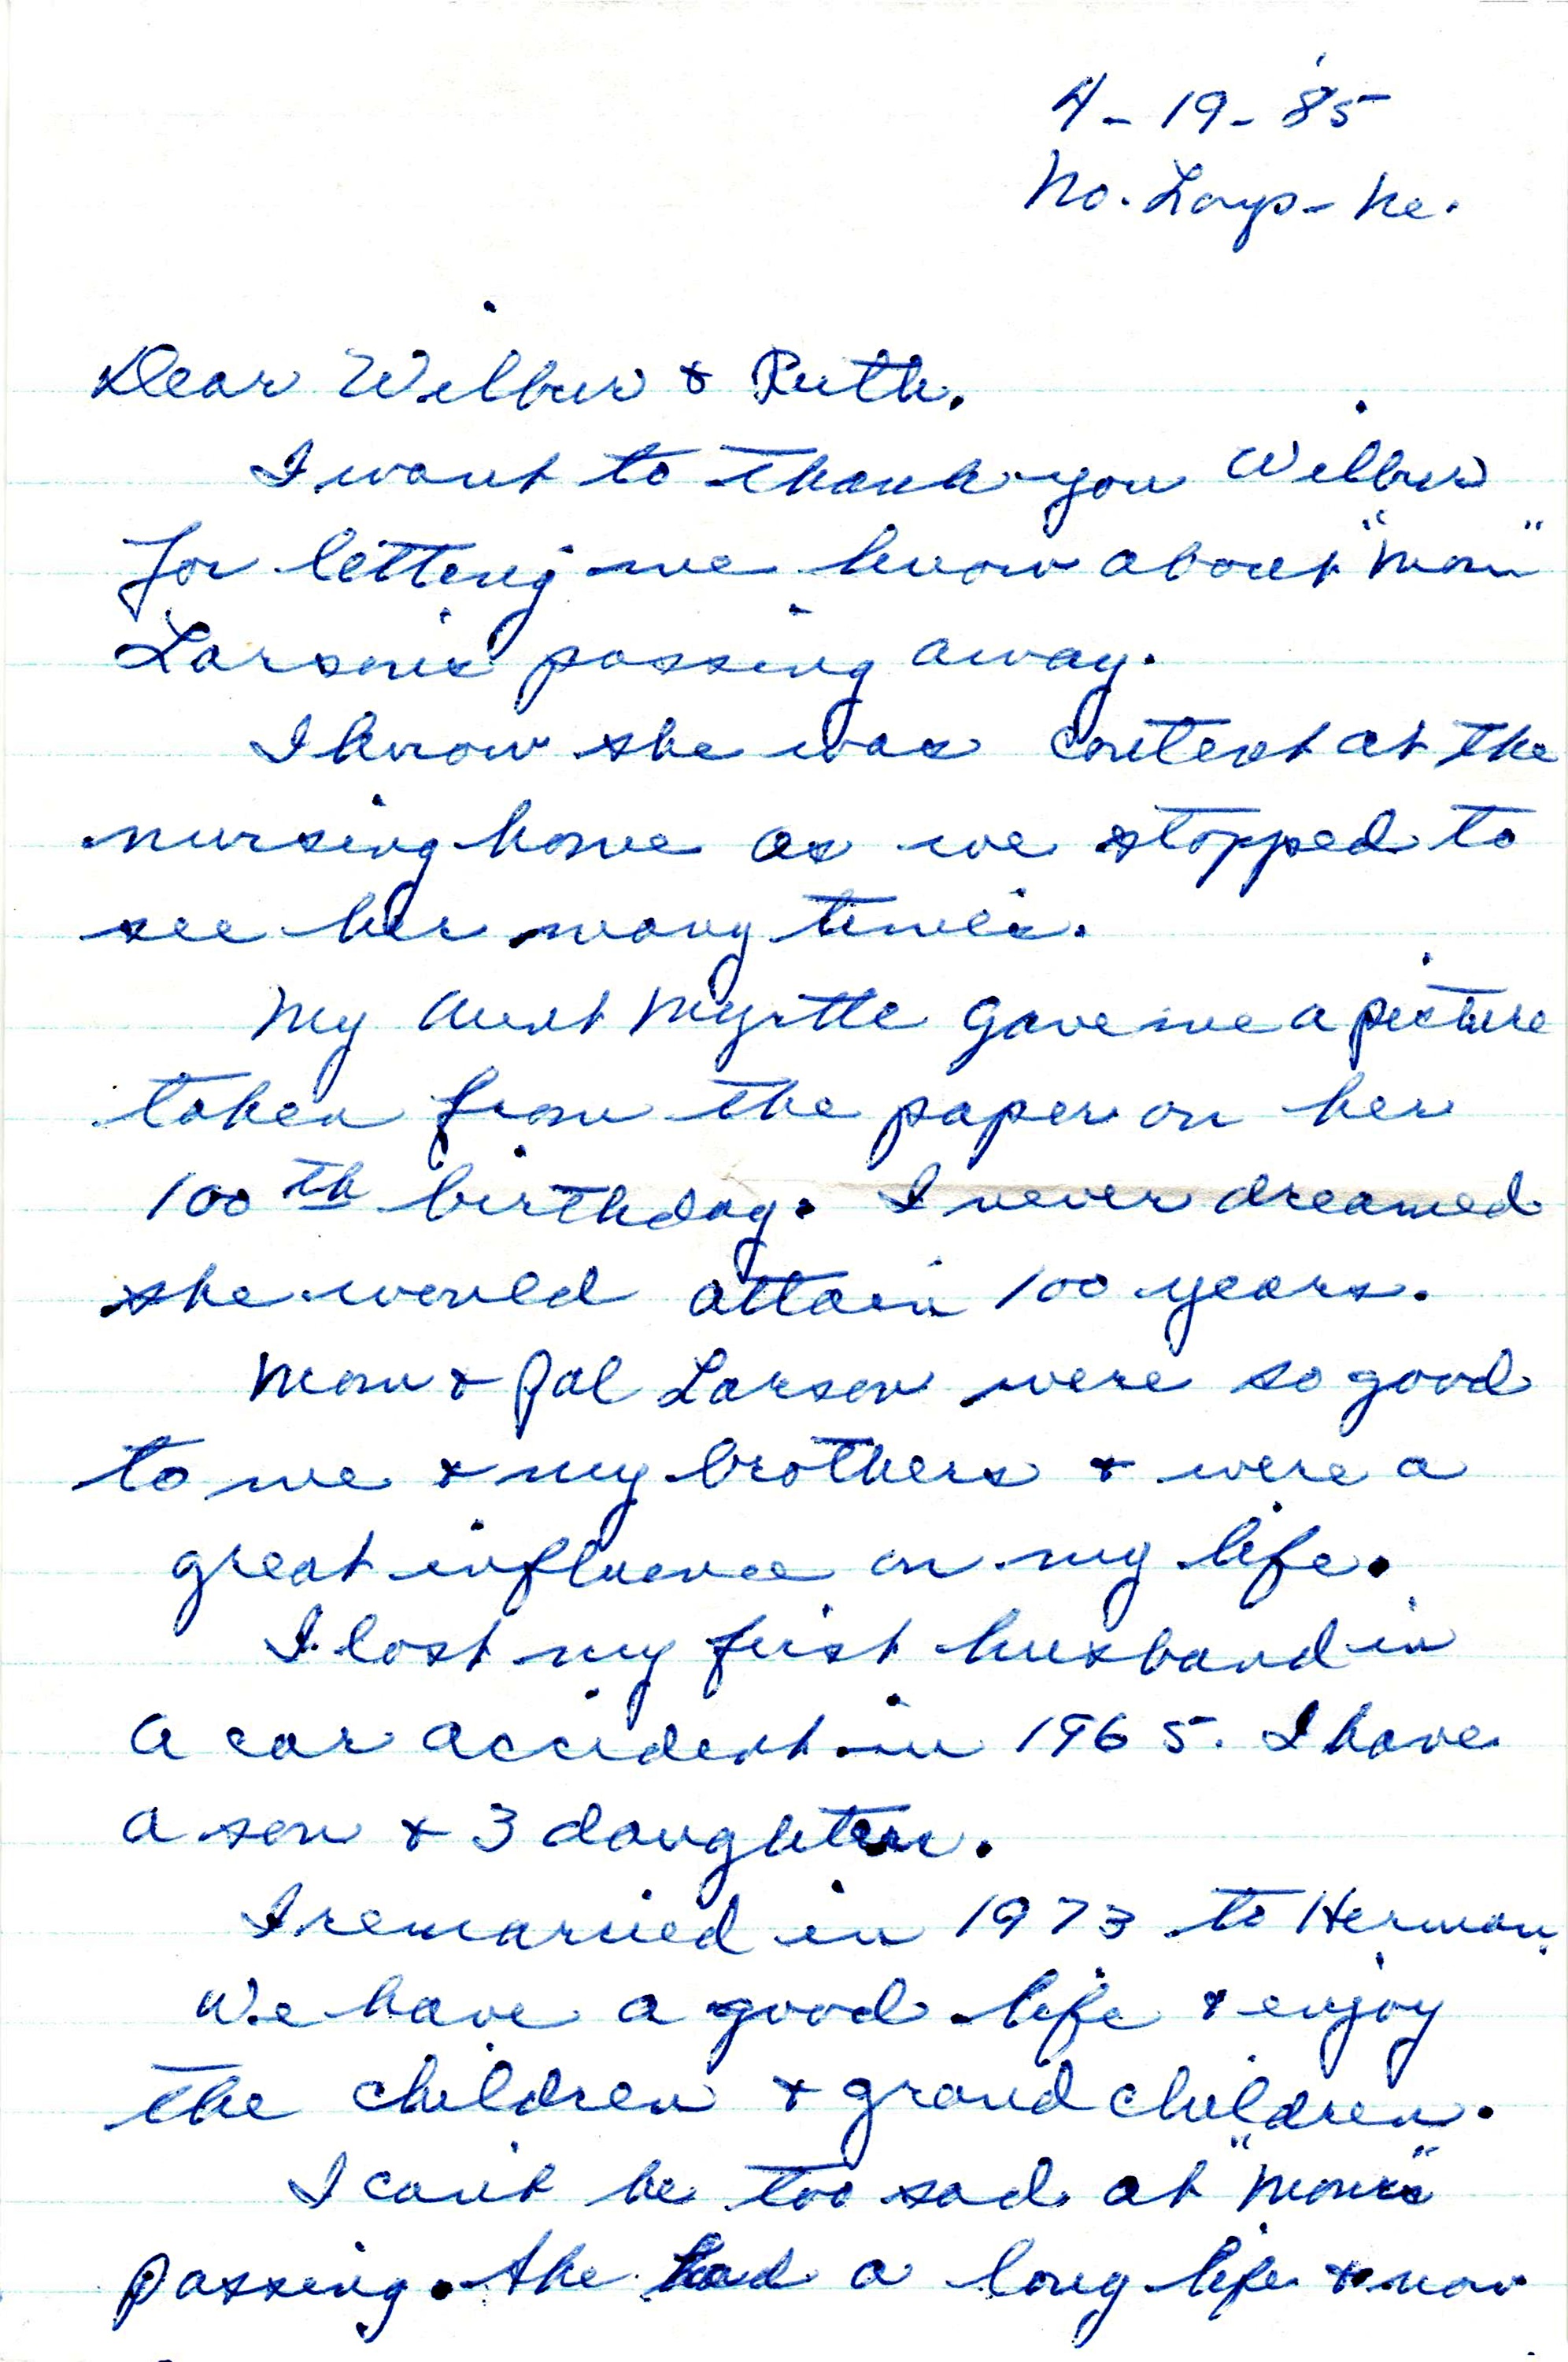 4-19-'85
No. Loup- Ne.
Dear Wilbur & Ruth.
I want to thank you Wilbur
for letting me know about "Mom"
Larson's passing away.
I know she was content at the
nursing home as we stopped to
see her many times.
My Aunt Myrtle gave me a picture
taken from the paper on her
100th birthday. I never dreamed
she would attain 100 years.
Mom & Pal Larson were so good
to me & my brothers & were a
great influence on my life.
I lost my first husband in
a car accident in 1965. I have
a son & 3 daughters.
I remarried in 1973 to Herman.
We have a good life & enjoy
the children & grandchildren.
I can't be too sad at "Mom's"
passing. She had a long life & now